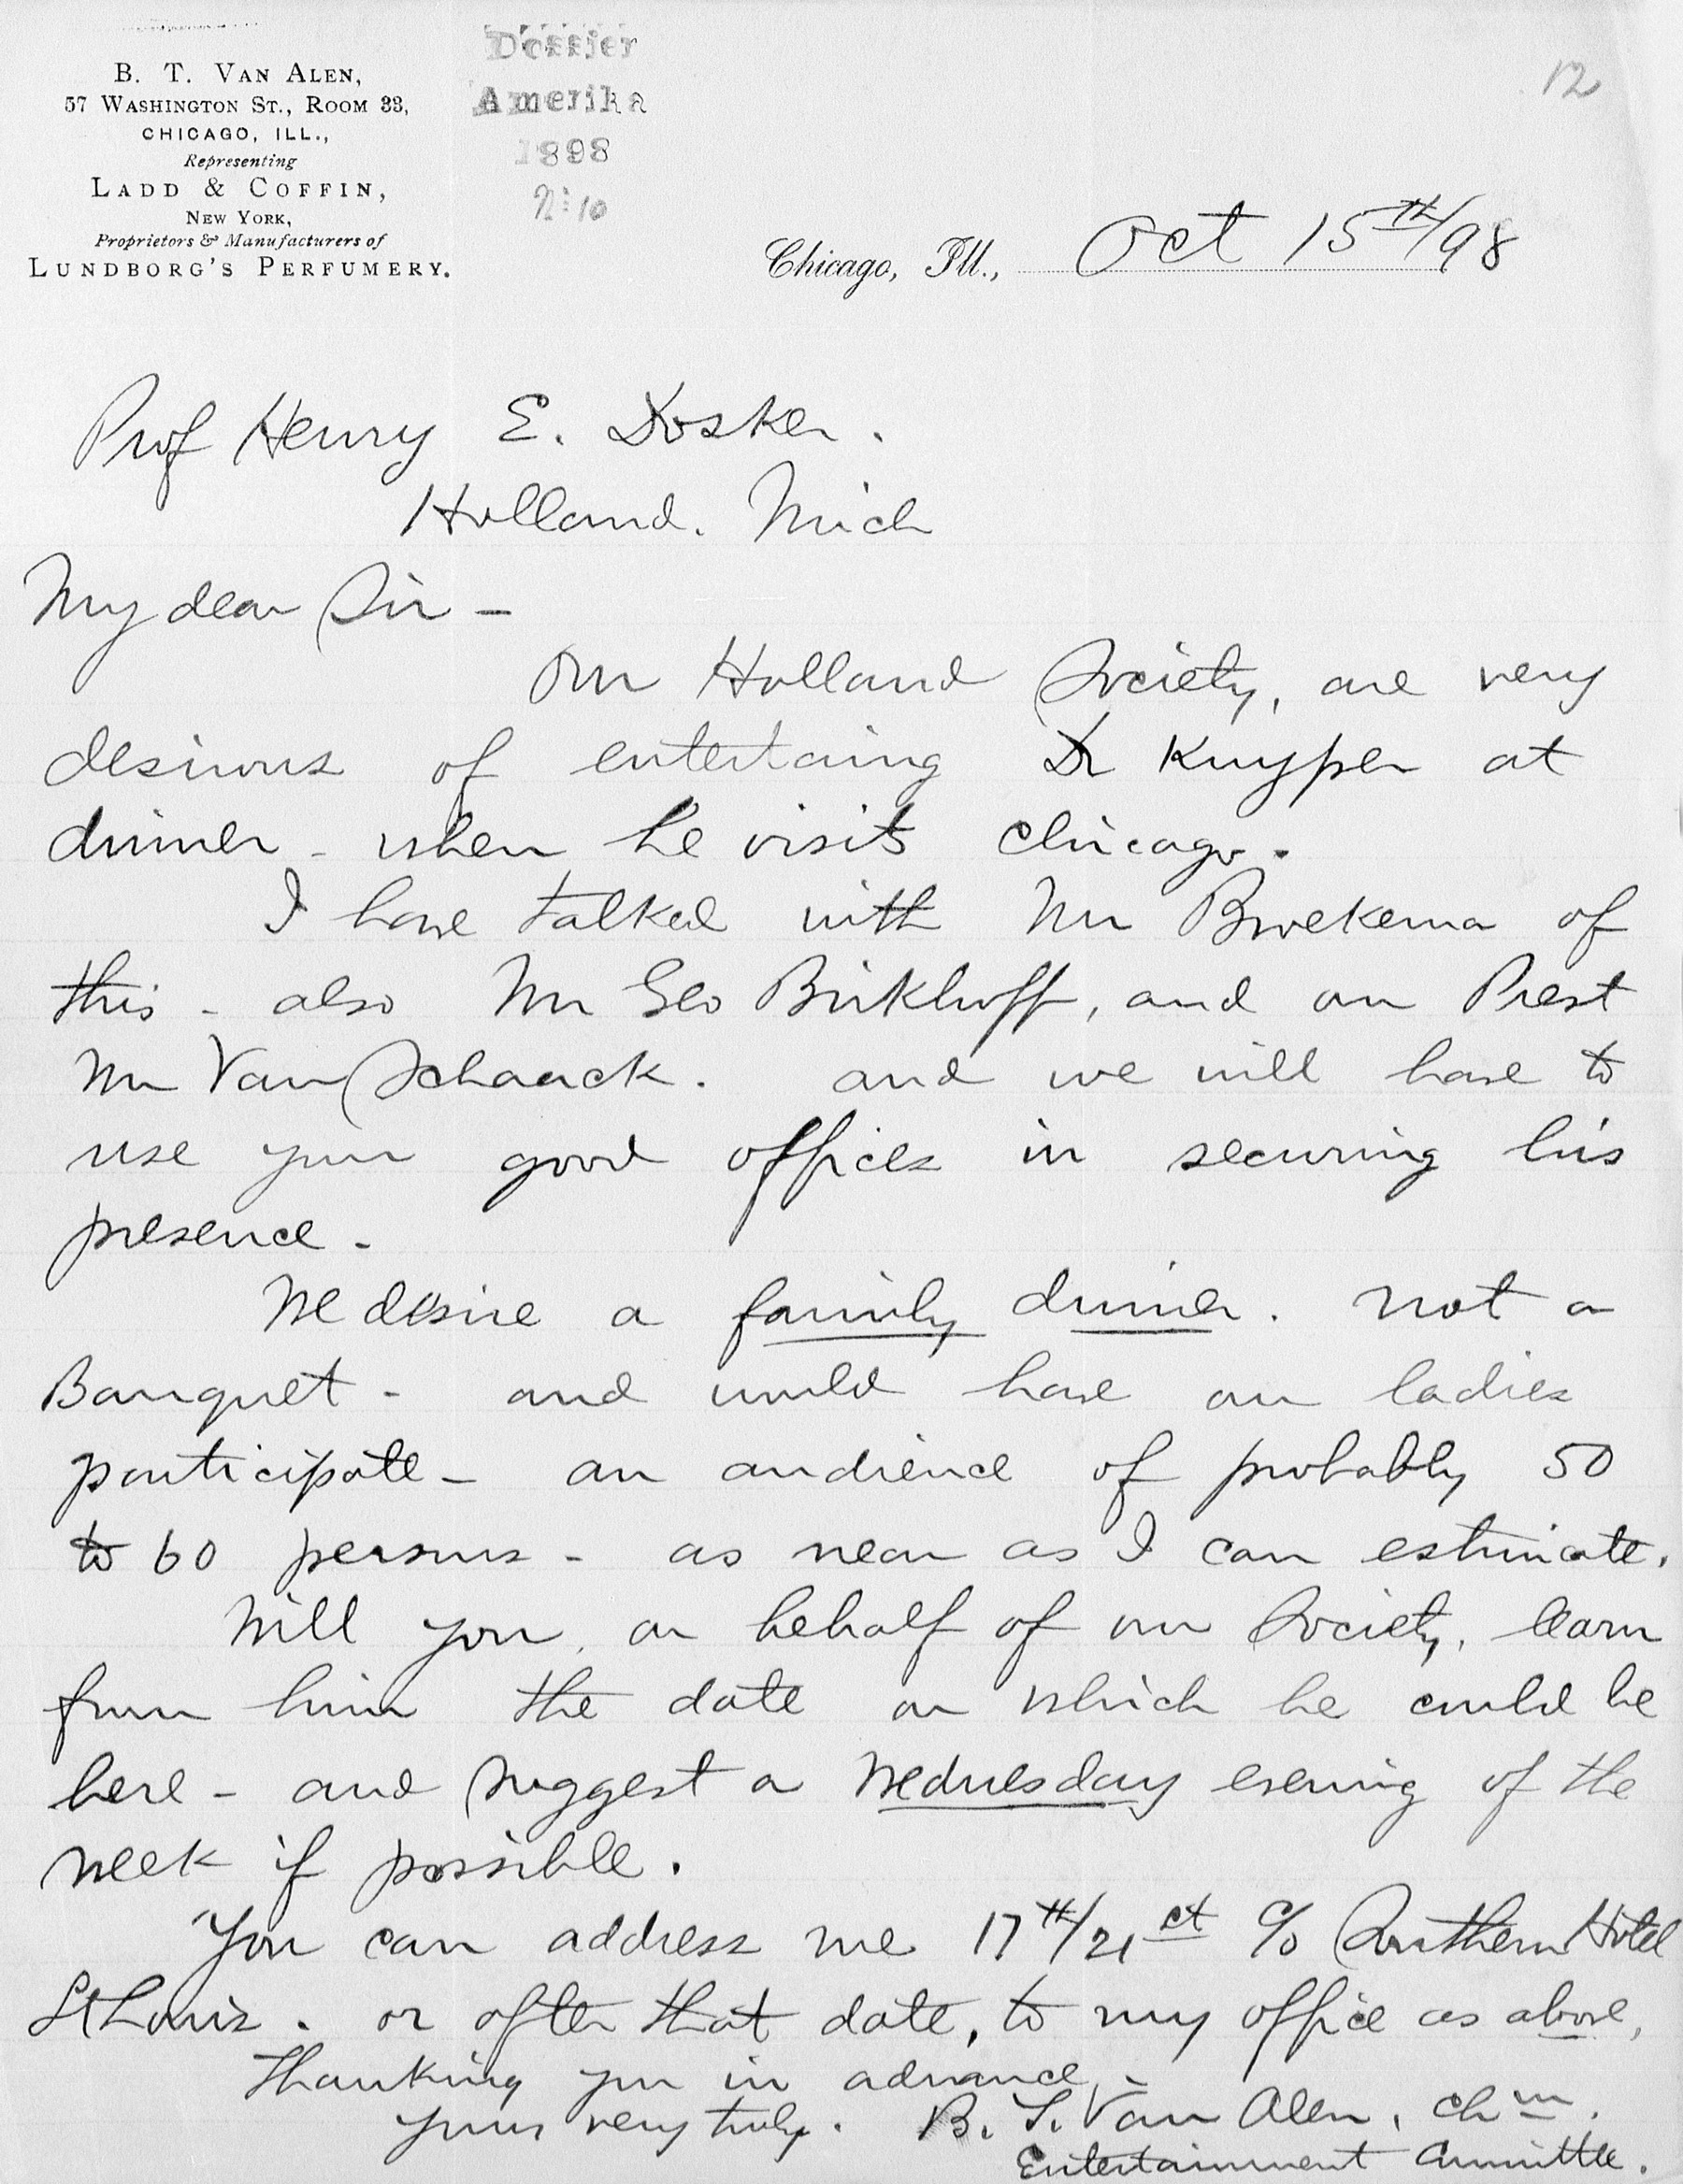 B. T. VAN ALEN,
57 WASHINGTON ST., ROOM 33,
CHICAGO, ILL.,
Representing
LADD & COFFIN,
NEW YORK,
Proprietors & Manufacturers of
LUNDBORG'S PERFUMERY.
Dossier
Amerika
1898
N: 10
12
Chicago, Ill., Oct 15th/98
Prof Henry E. Dosker.
Holland. Mich
My dear Sir -
Our Holland Society, are very
desirous of entertaing Dr Kuyper at
dinner - when he visits Chicago.
I have talked with Mr Broekema of
this - also Mr Geo Birkhoff, and our Prest
Mr Van Schaack. and we will have to
use your good offices in securing his
presence -
We desire a family dinner. not a
Banquet - and would have our ladies
participate - an audience of probably 50
to 60 persons - as near as I can estimate.
Will you, on behalf of our Society, learn
from him the date on which he could be
here - and suggest a Wednesday evening of the
week if possible.
You can address me 17th/21st c/o Southern Hotel
St Louis. or after that date, to my office as above,
Thanking you in advance -
yours very truly. B. T. Van Alen, Chm.
Entertainment Committee.